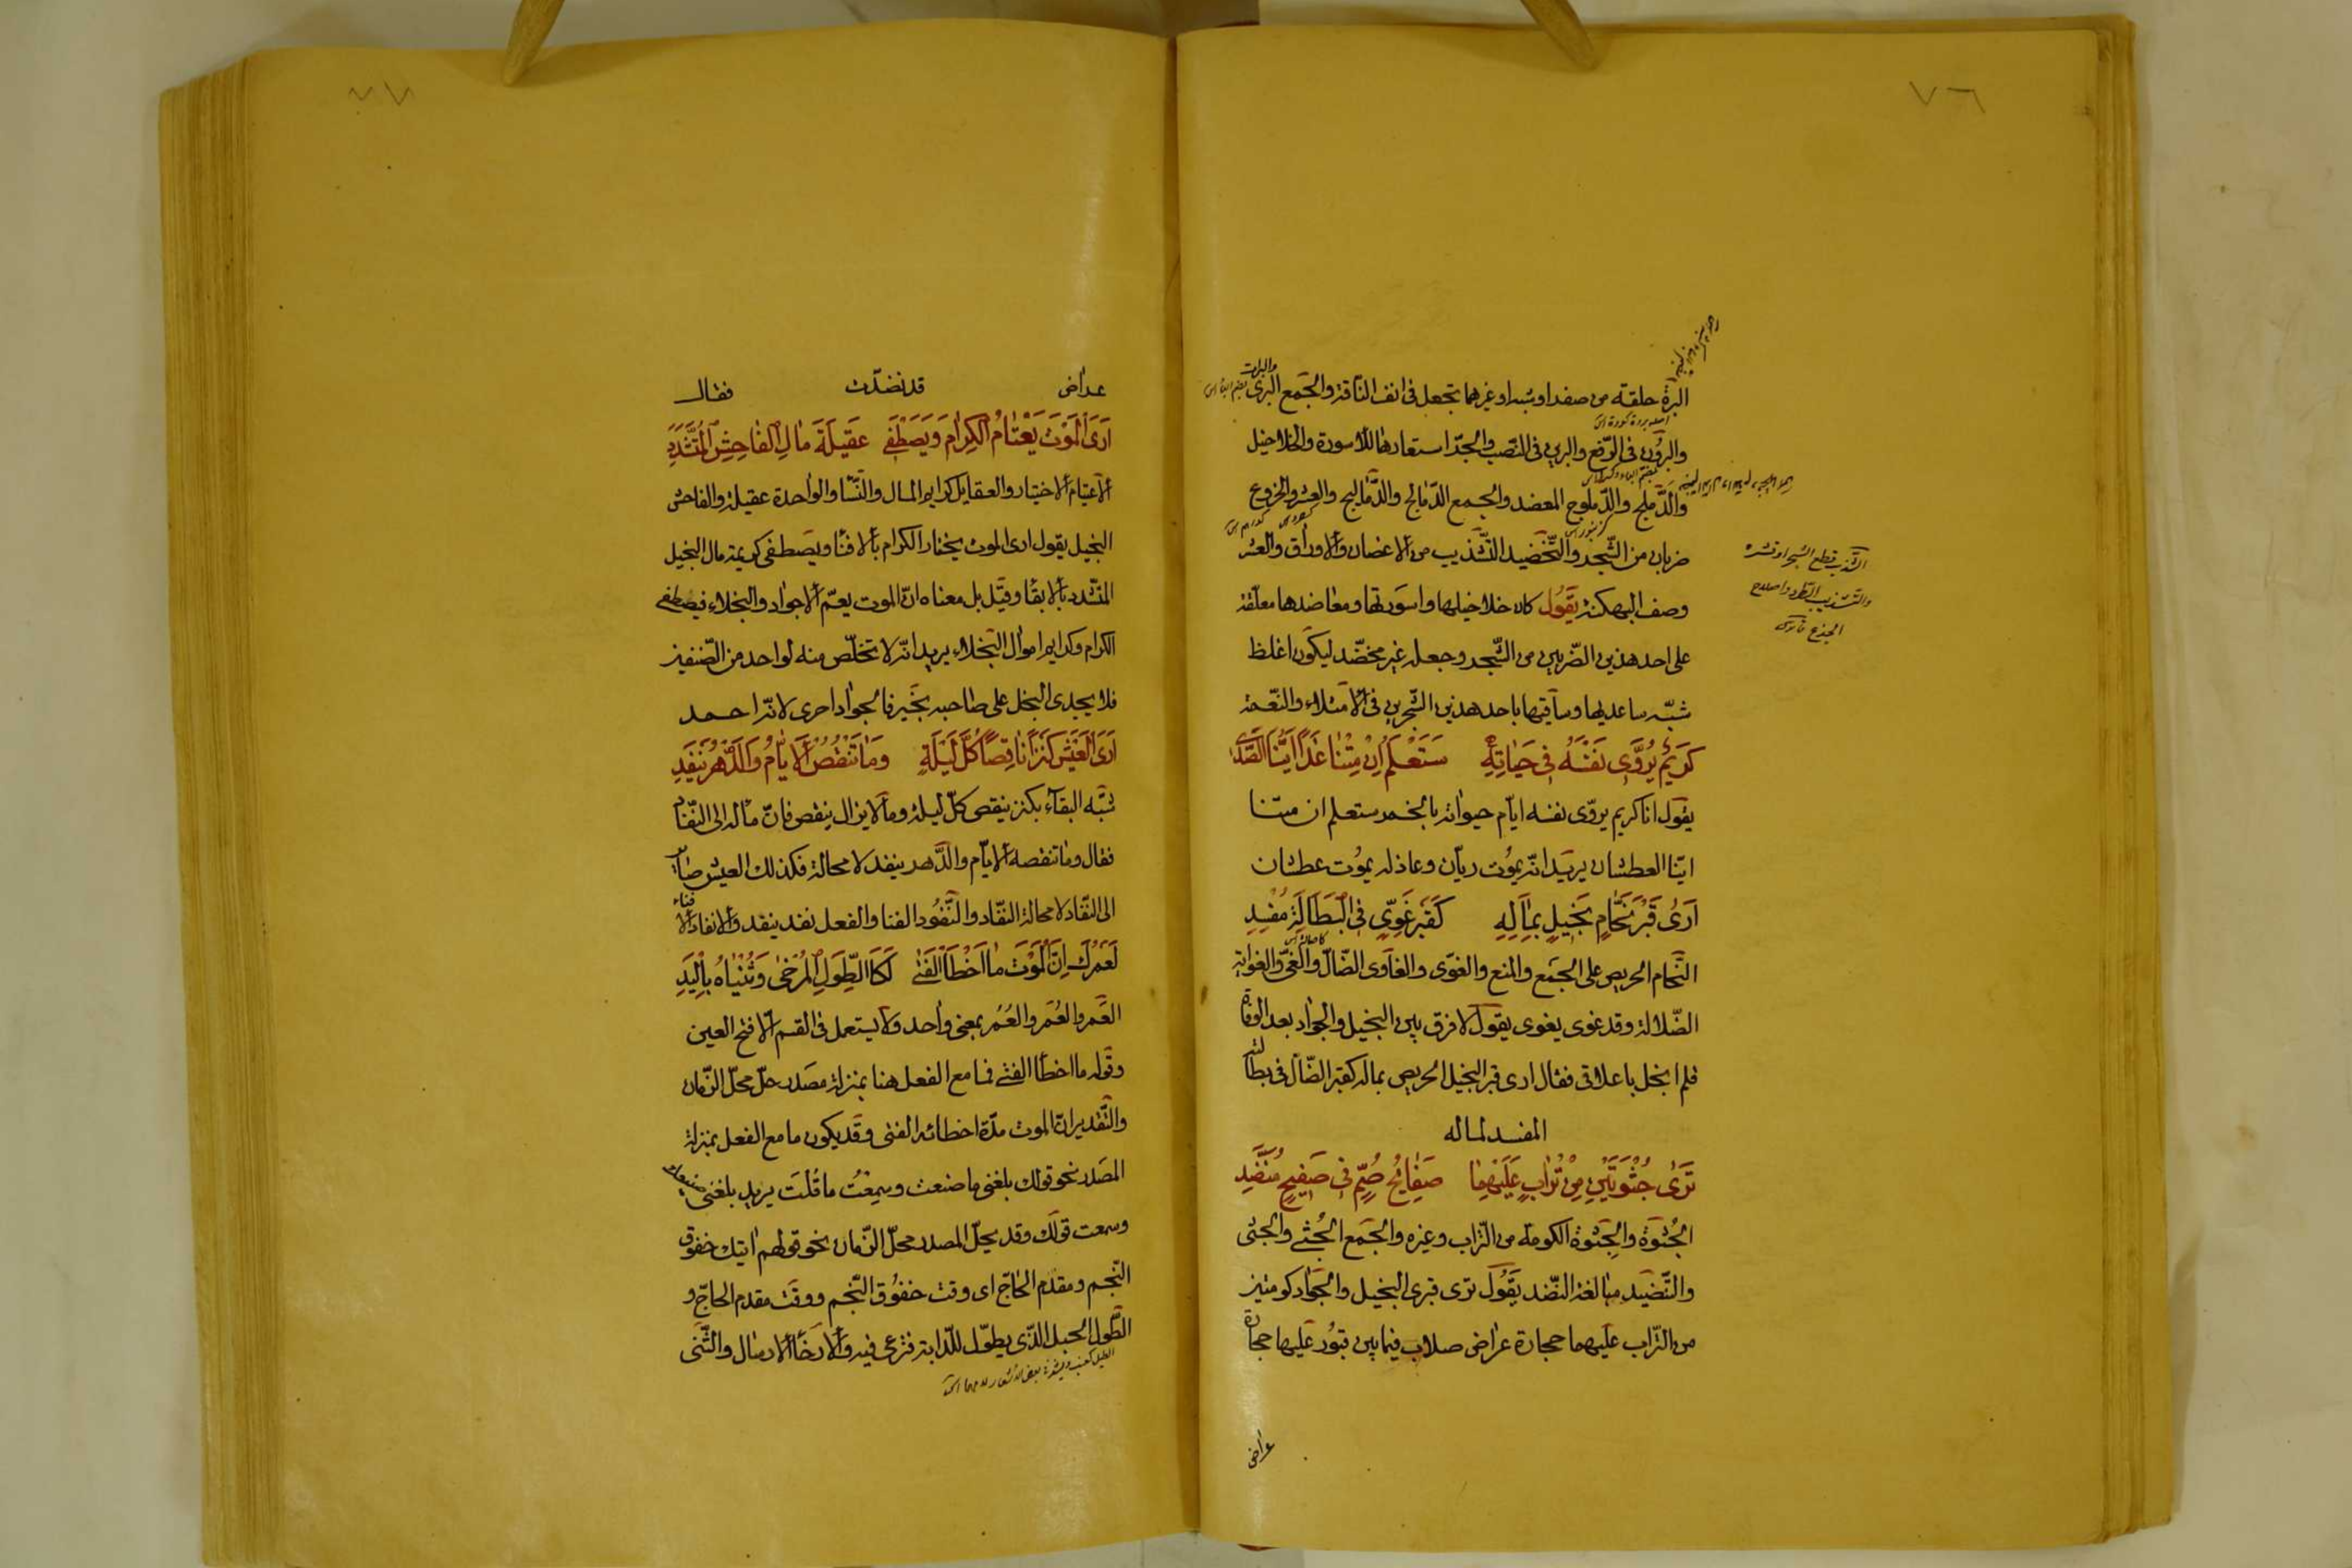 ٧٦
البرة حلقة من صفر او شبه او غيرهما تجعل فى انف الناقة والجمع البرى والبرات
والبرون فى الرّفع والبرين فى النّصب والجرّ استعارها للاسورة والخلاخيل
والدّملج والدّملوج المعضد والجمع الدّمالج والدّماليج والعشر والخروع
ضربان من الشّجر والتّخضيد التّشذيب من الاغصان والاوراق والعشر
وصف البهكنة يقول كان خلاخيلها واسورتها ومعاضدها معلّقة
على احد هذين الضّربين من الشّجر وجعله غير مخضّد ليكون اغلظ
شبّه ساعديها وساقيها باحد هذين الشّجرين فى الامتلاء والنّعمة
كَرِيمٌ يُرَوِّى نَفْسَهُ فِى حَيَاتِهِ سَتَعْلَمُ اِنْ مِتْنَا غَدًا اَيُّنَا الصَّدِى
يقول انا كريم يروّى نفسه ايّام حيواته بالخمر ستعلم ان متنا
ايّنا العطشان يريد انّه يموت ريّان وعاذله يموت عطشان
اَرَى قَبْرَ نَحَّامٍ بَخِيلٍ بِمَالِهِ كَقَبْرِ غَوِيٍّ فِى الْبَطَالَةِ مُفْسِدِ
النّحّام الحريص على الجمع والمنع والغوىّ والغاوى الضّالّ والغىّ والغواية
الضّلالة وقد غوى يغوى يقول لا فرق بين البخيل والجواد بعد الوفاة
فلم ابخل باعلاقى فقال ارى قبر البخيل الحريص بماله كقبر الضّال فى بطالته
المفسد لماله
تَرَى جُثْوَتَيْنِ مِنْ تُرَابٍ عَلَيْهِمَا صَفَائِحُ صُمٌّ فِى صَفِيحٍ مُنَضَّدِ
الجُثوة والجِثوة الكومة من التّراب وغيره والجمع الجُثى والجثى
والتّنضيد مبالغة النّضد يقول ترى قبرى البخيل والجواد كومتين
من التّراب عليهما حجارة عراض صلاب فيما بين قبور عليها حجارة
عراض
التشذيب قطع الشجر او قشره
والتشذيب الطّرد واصلاح
الجذع قاموس
٧٧
عراض قد نضّدت فقال
اَرَى الْمَوْتَ يَعْتَامُ الْكِرَامَ وَيَصْطَفِى عَقِيلَةَ مَالِ الْفَاحِشِ الْمُتَشَدِّدِ
الاعتيام الاختيار والعقايل كرايم المال والنّسا والواحدة عقيلة والفاحش
البخيل يقول ارى الموت يختار الكرام بالافنا ويصطفى كريمة مال البخيل
المتشدد بالابقا وقيل بل معناه انّ الموت يعمّ الاجواد والبخلاء فيصطفى
الكرام وكرايم اموال البخلاء يريد انّه لا تخلّص منه لواحد من الصّنفين
فلا يجدى البخل على صاحبه بخير فالجواد احرى لانّه احمد
اَرَى الْعَيْشَ كَنْزًا نَاقِصًا كُلَّ لَيْلَةٍ وَمَا تَنْقُصُ الْاَيَّامُ وَالدَّهْرُ يَنْفَدِ
شبّه البقآء بكنز ينقص كلّ ليلة وما لا يزال ينقص فانّ مآله الى النّفاد
فقال وما تنقصه الايّام والدّهر ينفد لا محالة فكذلك العيش صاير
الى النّفاد لا محالة النفاد والنّفود الفنا والفعل نفد ينفد والانفاد الافناء
لَعَمْرُكَ اِنَّ الْمَوْتَ مَا اَخْطَأَ الْفَتَى لَكَالطِّوَلِ الْمُرْخَى وَثِنْيَاهُ بِالْيَدِ
العَمر والعُمر والعُمُر بمعنى واحد ولا يستعمل فى القسم الّا فتح العين
وقوله ما اخطأ الفتى فما مع الفعل هنا بمنزلة مصدر حلّ محلّ الزّمان
والتّقدير انّ الموت مدّة اخطائه الفتى وقد يكون ما مع الفعل بمنزلة
المصدر نحو قولك بلغنى ما صنعت وسمعتُ ما قلت يريد بلغنى صنيعك
وسمعت قولك وقد يحلّ المصدر محلّ الزّمان نحو قولهم اتيتك خفوق
النّجم ومقدم الحاجّ اى وقت خفوق النّجم ووقت مقدم الحاجّ و
الطّول الحبل الذّى يطوّل للدّابة فترعى فيه والارخا الارسال والثّنى